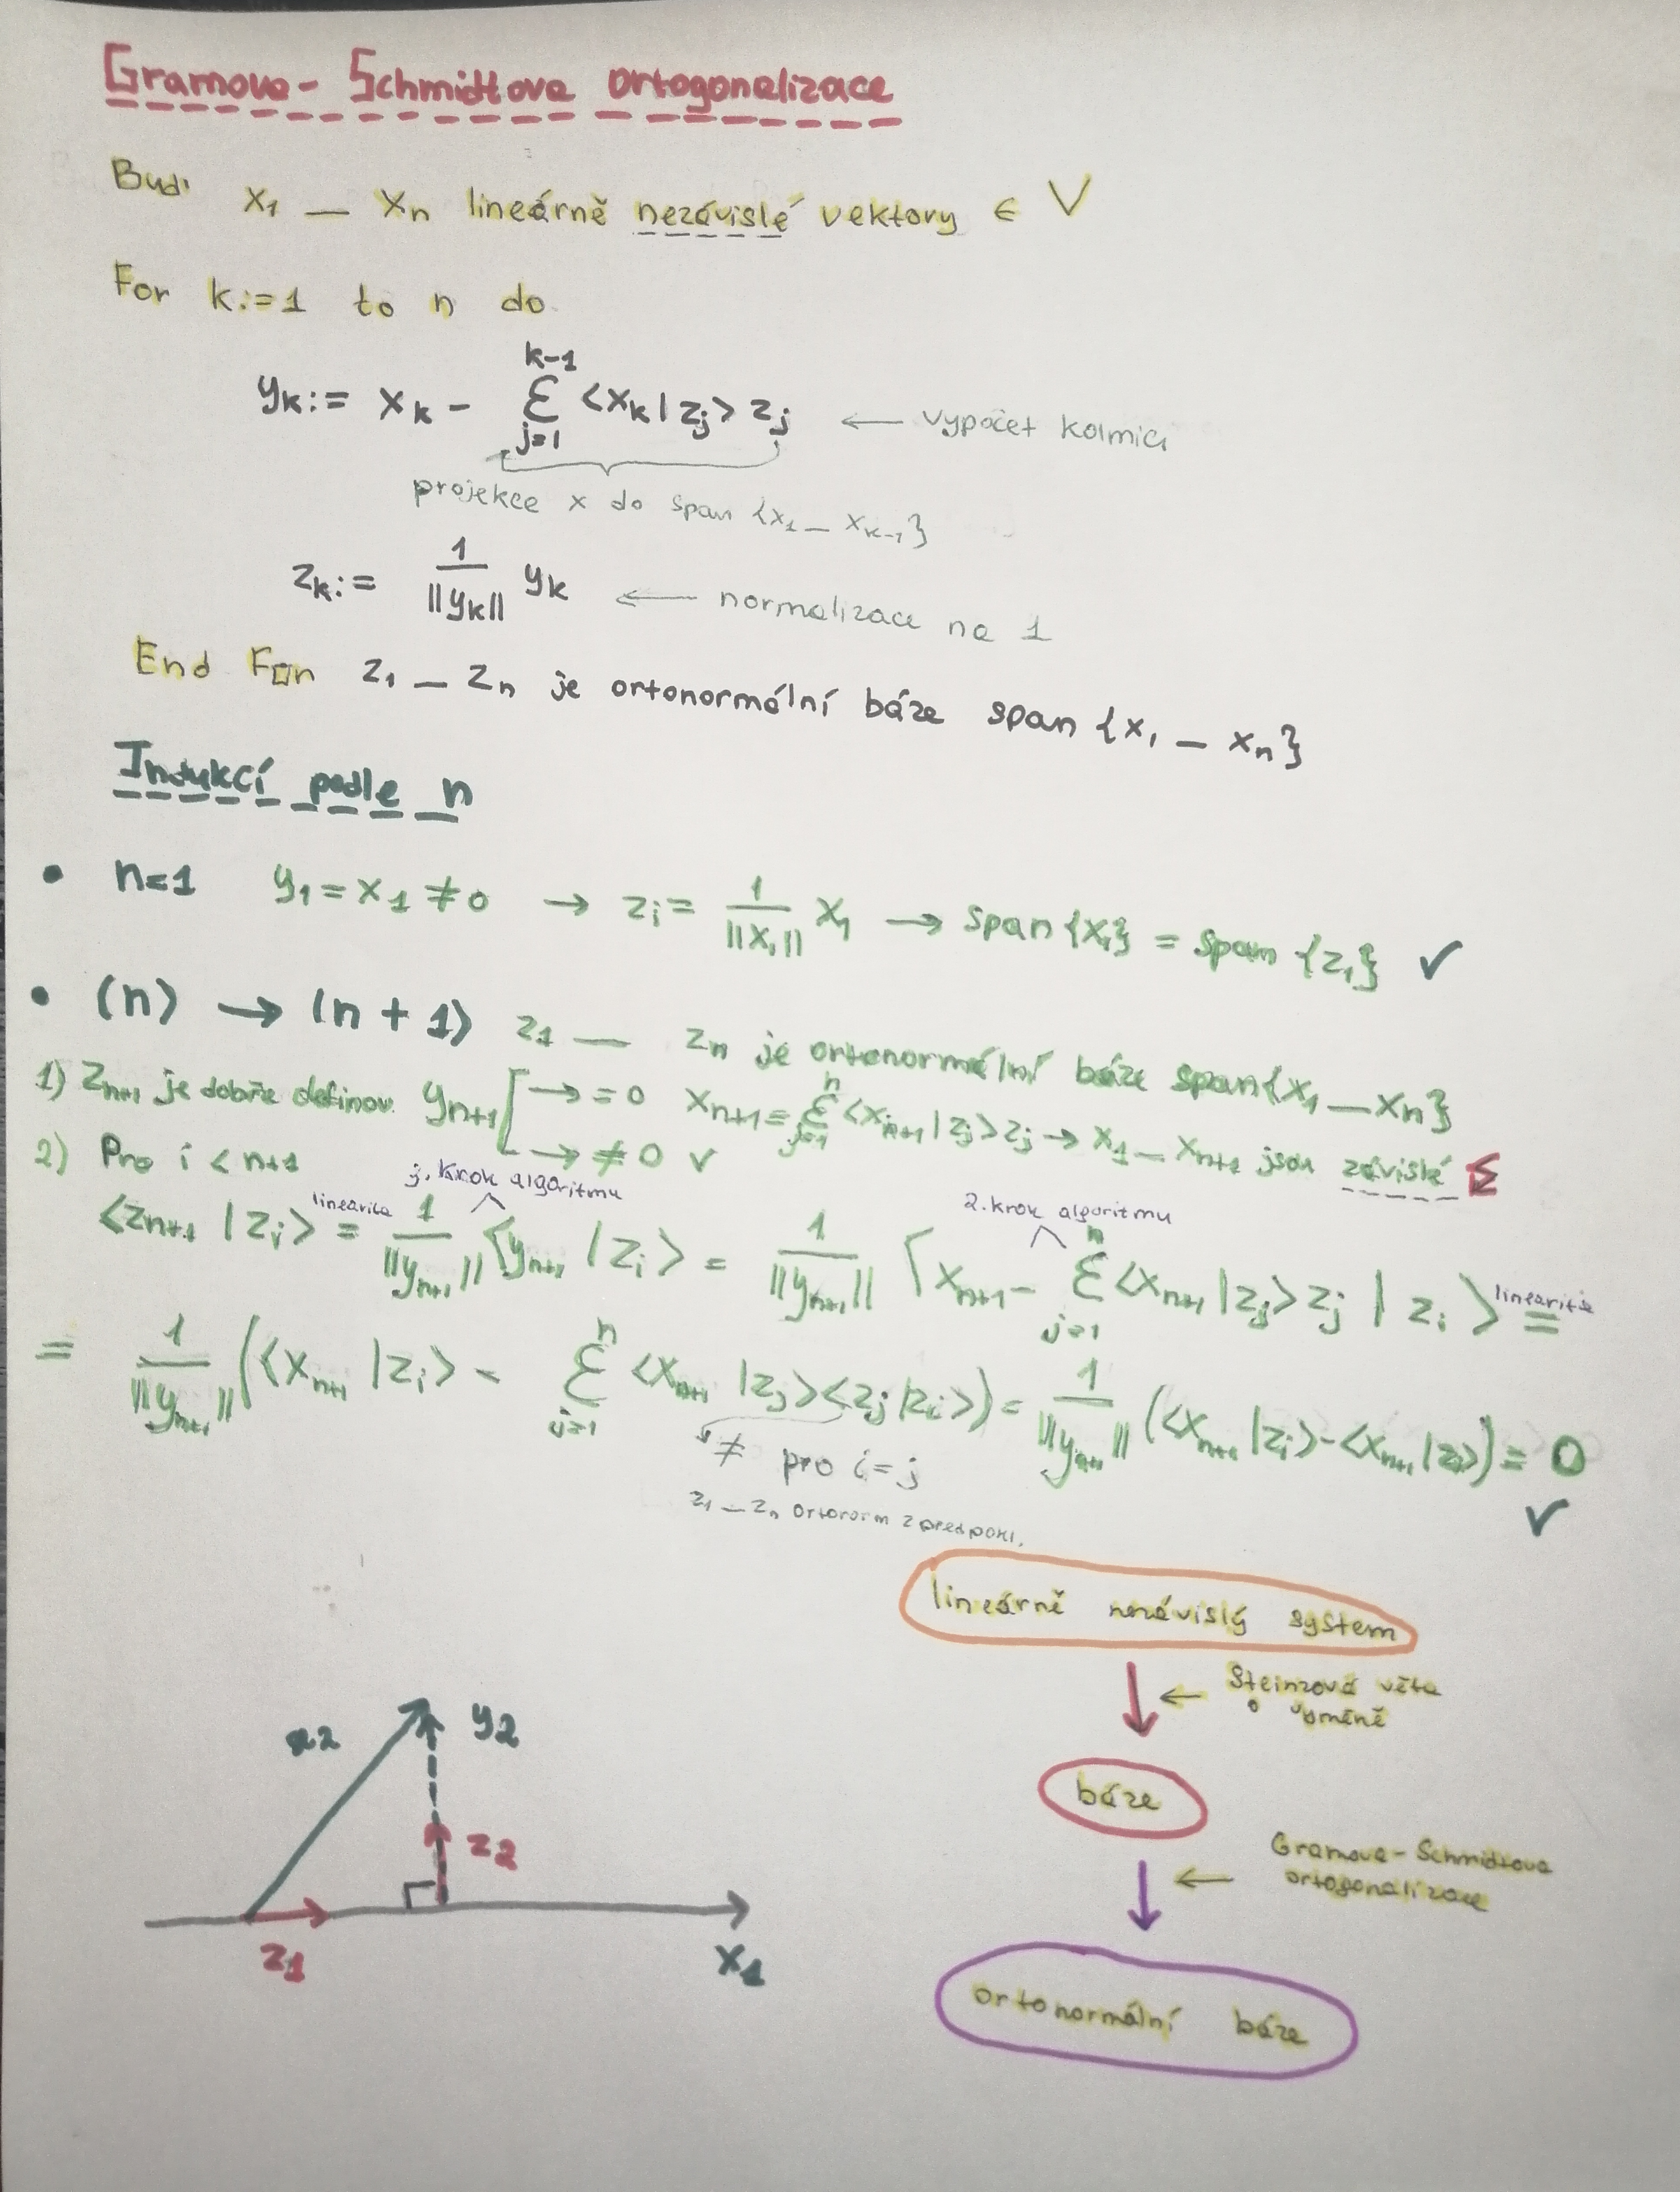 Gramova-Schmidtova ortogonalizace
Buď x₁ — xₙ lineárně nezávislé vektory ∈ V
For k:=1 to n do
yₖ := xₖ - Σ_{j=1}^{k-1} <xₖ|zⱼ> zⱼ ← výpočet kolmici
projekce x do span {x₁ — xₖ₋₁}
zₖ := 1/||yₖ|| yₖ ← normalizace na 1
End For z₁ — zₙ je ortonormální báze span {x₁ — xₙ}
Indukcí podle n
• n=1 y₁ = x₁ ≠ 0 → zᵢ = 1/||x₁|| x₁ → span{x₁} = span {z₁} ✓
• (n) → (n+1) z₁ — zₙ je ortonormální báze span{x₁ — xₙ}
1) zₙ₊₁ je dobře definov. yₙ₊₁ → = 0 xₙ₊₁ = Σ_{j=1}^{n} <xₙ₊₁|zⱼ>zⱼ → x₁ — xₙ₊₁ jsou závislé
→ ≠ 0 ✓
2) Pro i < n+1
linearita j. krok algoritmu 2. krok algoritmu
<zₙ₊₁|zᵢ> = 1/||yₙ₊₁|| <yₙ₊₁|zᵢ> = 1/||yₙ₊₁|| <xₙ₊₁ - Σ_{j=1}^{n} <xₙ₊₁|zⱼ>zⱼ | zᵢ> linearita =
= 1/||yₙ₊₁|| (<xₙ₊₁|zᵢ> - Σ_{j=1}^{n} <xₙ₊₁|zⱼ><zⱼ|zᵢ>) = 1/||yₙ₊₁|| (<xₙ₊₁|zᵢ> - <xₙ₊₁|zᵢ>) = 0
≠ pro i=j
✓
z₁ — zₙ ortonorm z předpokl.
lineárně nezávislý system
← Steinzová věta
o výměně
báze
← Gramova-Schmidtova
ortogonalizace
ortonormální báze
x2
y2
z2
z1
x1